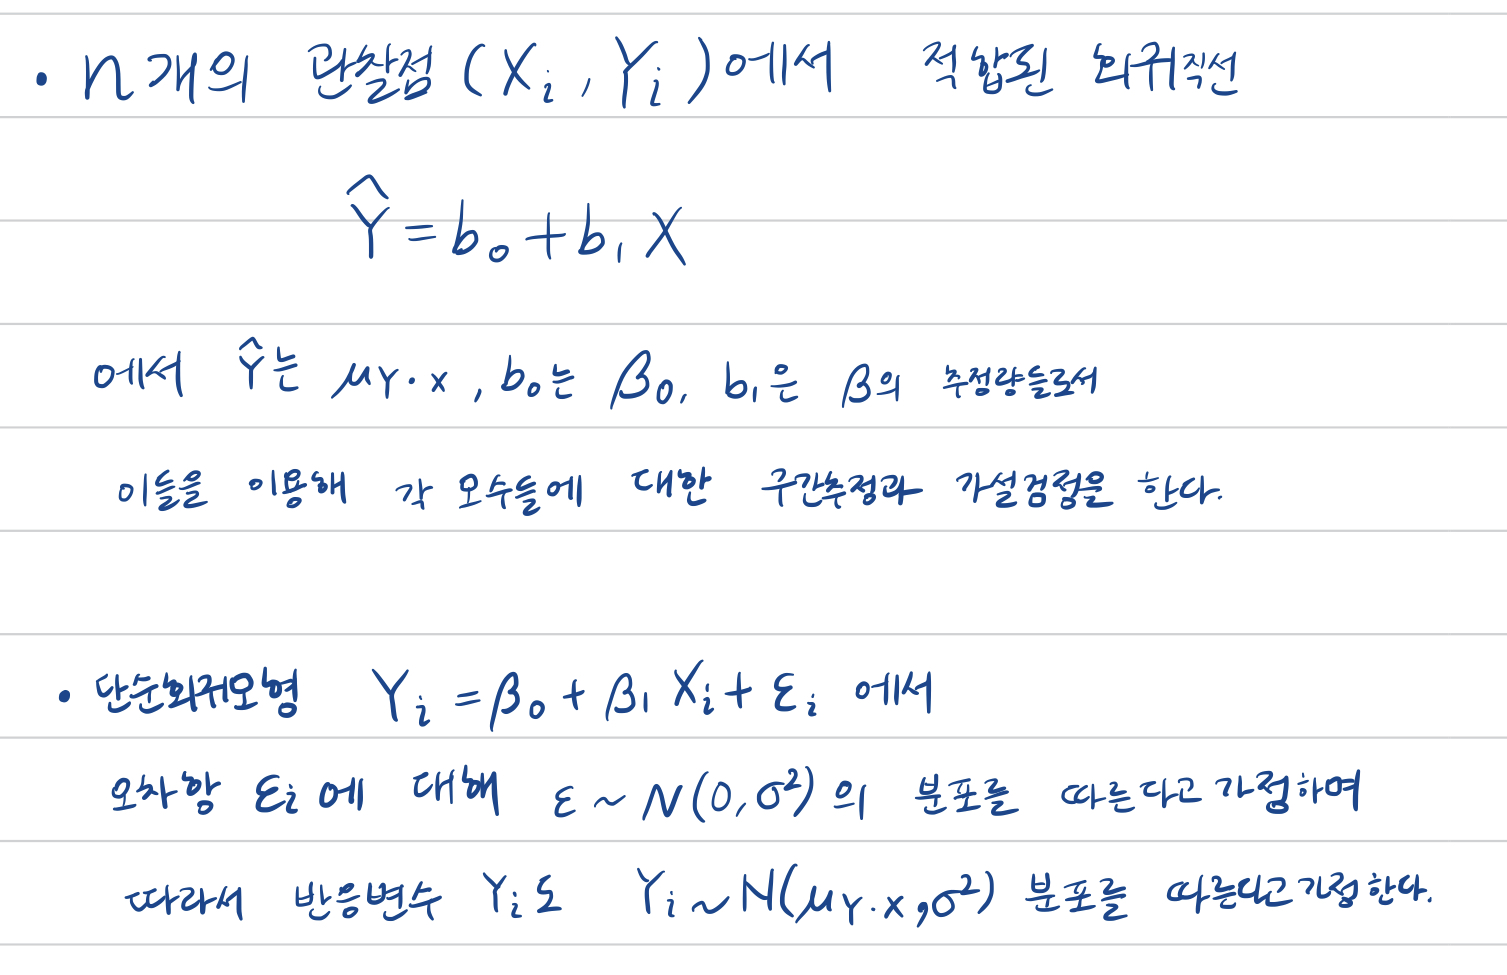 • n개의 관찰점 (Xᵢ, Yᵢ)에서 적합된 회귀직선
Ŷ = b₀ + b₁ X
에서 Ŷ는 μY·x, b₀는 β₀, b₁은 β의 추정량들로서
이들을 이용해 각 모수들에 대한 구간추정과 가설검정을 한다.
• 단순회귀모형 Yᵢ = β₀ + β₁ Xᵢ + εᵢ 에서
오차항 εᵢ에 대해 ε ~ N(0, σ²)의 분포를 따른다고 가정하며
따라서 반응변수 Yᵢ도 Yᵢ ~ N(μY·x, σ²) 분포를 따른다고 가정한다.